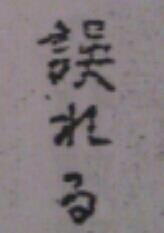 誤れる